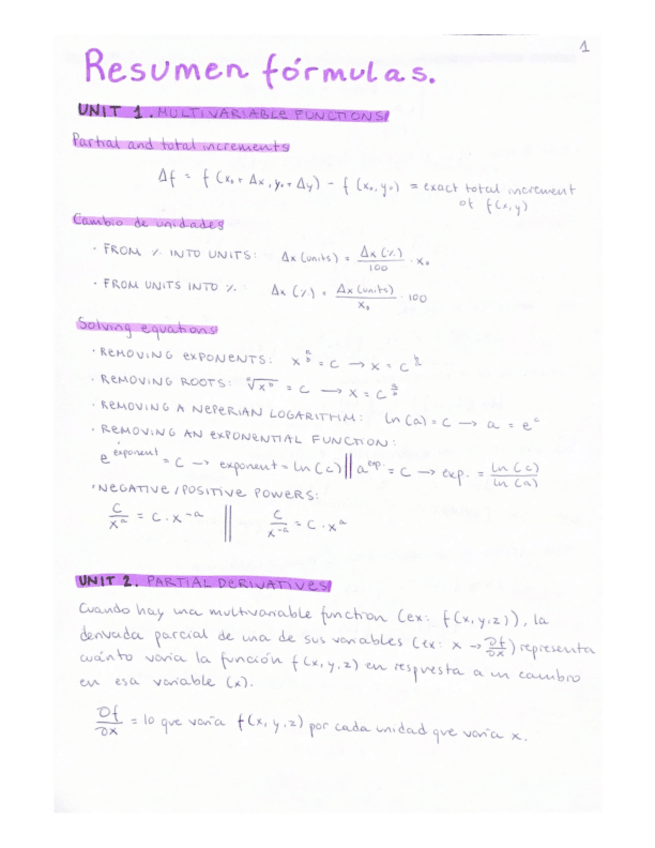 1
Resumen fórmulas.
UNIT 1. MULTIVARIABLE FUNCTIONS
Partial and total increments
Δf = f(x₀ + Δx, y₀ + Δy) - f(x₀, y₀) = exact total increment
of f(x,y)
Cambio de unidades
· FROM % INTO UNITS: Δx (units) = Δx (%)/100 · x₀
· FROM UNITS INTO %: Δx (%) = Δx (units)/x₀ · 100
Solving equations
· REMOVING EXPONENTS: x^(a/b) = c → x = c^(b/a)
· REMOVING ROOTS: ᵃ√(x^b) = c → x = c^(a/b)
· REMOVING A NEPERIAN LOGARITHM: ln(a) = c → a = e^c
· REMOVING AN EXPONENTIAL FUNCTION:
e^exponent = c → exponent = ln(c) || a^exp. = c → exp. = ln(c)/ln(a)
· NEGATIVE/POSITIVE POWERS:
c/x^a = c · x^-a || c/x^-a = c · x^a
UNIT 2. PARTIAL DERIVATIVES
Cuando hay una multivariable function (ex: f(x,y,z)), la
derivada parcial de una de sus variables (ex: x → ∂f/∂x) representa
cuánto varía la función f(x,y,z) en respuesta a un cambio
en esa variable (x).
∂f/∂x = lo que varía f(x,y,z) por cada unidad que varía x.